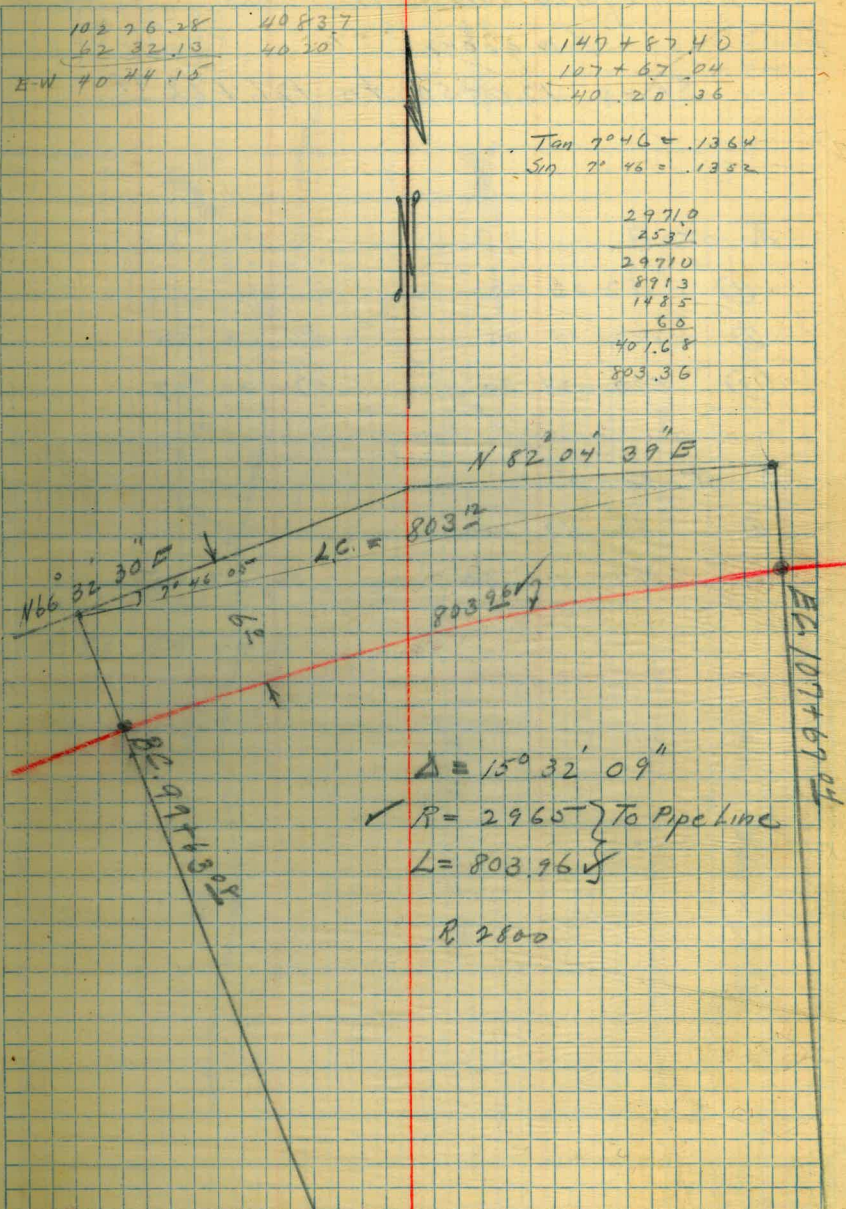 102 76.28 40 83.7
62 32.13 40 20
E-W 40 44.15
147 + 87.40
107 + 67.04
40.20.36
Tan 7° 46 = .1364
Sin 7° 46 = .1352
2971.0
2531
29710
8913
1485
60
401.68
803.36
N 82° 04' 39" E
L.C. = 803 12
N66° 32' 30" E
7° 46 05
6 0
803 96 ✓
BC. 99+63 08
EC. 107+67 04
Δ = 15° 32' 09"
✓ R = 2965 } To Pipe Line
L = 803.96 ✓
R 2800